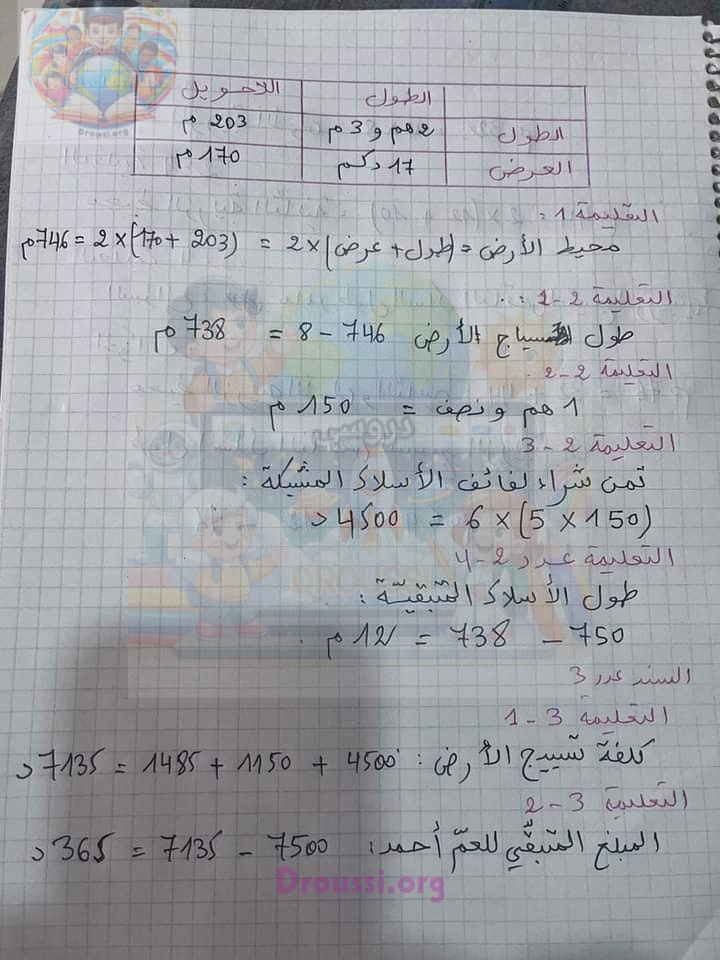 Droussi.org
الطول التحويل
الطول 2هم و 3 م 203 م
العرض 17 دكم 170 م
التعليمة 1 :
محيط الأرض = (طول + عرض) × 2 = (203 + 170) × 2 = 746م
التعليمة 2 - 1 :
طول سياج الأرض 746 - 8 = 738 م
التعليمة 2 - 2
1 هم ونصف = 150 م
التعليمة 2 - 3
ثمن شراء لفائف الأسلاك المشبكة :
(150 × 5) × 6 = 4500 د
التعليمة عدد 2 - 4
طول الأسلاك المتبقيّة :
750 - 738 = 12 م
السند عدد 3
التعليمة 3 - 1
كلفة تسييج الأرض : 4500 + 1150 + 1485 = 7135 د
التعليمة 3 - 2
المبلغ المتبقّي للعمّ أحمد : 7500 - 7135 = 365 د
Droussi.org